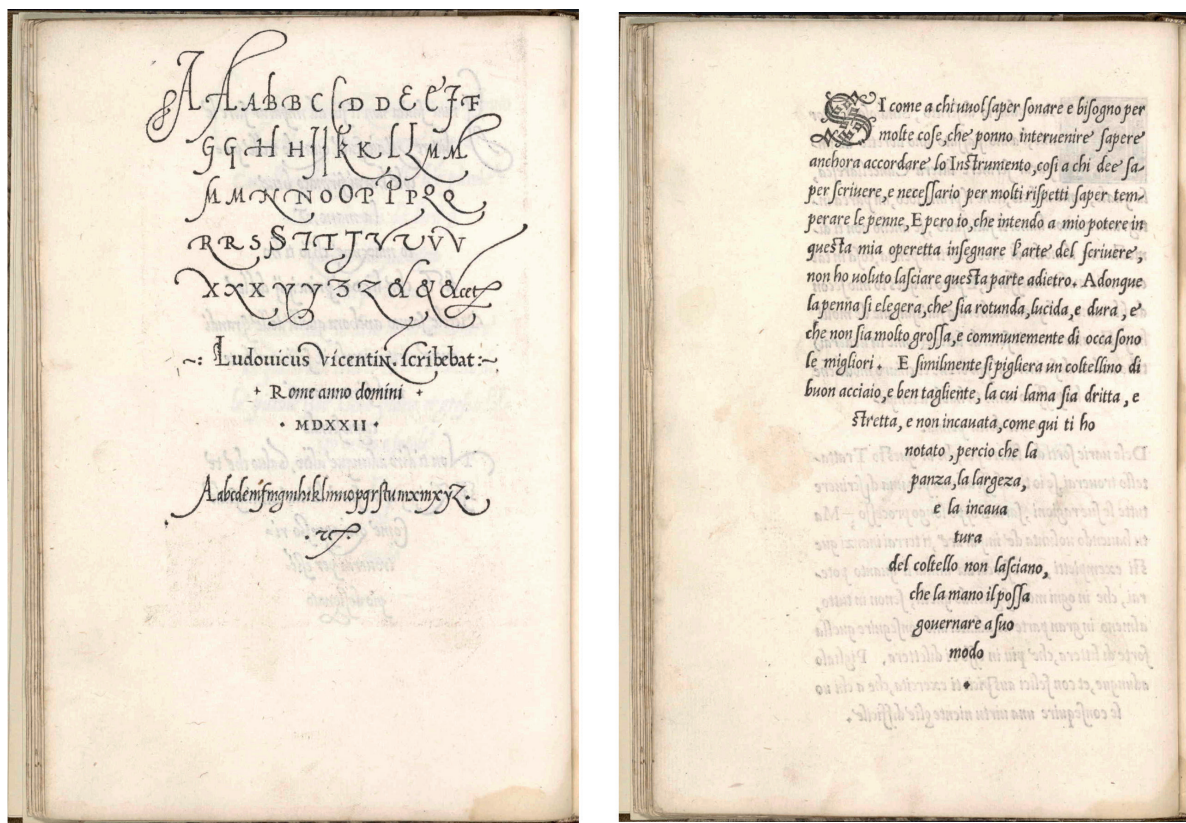 A A A b B C C D D E E F F
G G H H I J K K L L M M
M M N N N O O P P P Q Q
R R S S T T T V V V V
X X X Y Y Z Z & & & cet
~: Ludouicus Vicentin. scribebat :~
+ Rome anno domini +
• MDXXII •
Aabcdeefmfgmhiklmnopqrſstumxmxyz.
SI come a chi uuol ſaper ſonare e biſogno per
molte coſe, che ponno interuenire ſapere
anchora accordare lo Inſtrumento, coſi a chi dee ſa-
per ſcriuere, e neceſſario per molti riſpetti ſaper tem-
perare le penne, E pero io, che intendo a mio potere in
queſta mia operetta inſegnare l'arte del ſcriuere,
non ho uoluto laſciare queſta parte adietro. Adonque
la penna ſi elegera, che ſia rotunda, lucida, e dura, e
che non ſia molto groſſa, e communemente di occa ſono
le migliori. E ſimilmente ſi pigliera un coltellino di
buon acciaio, e ben tagliente, la cui lama ſia dritta, e
ſtretta, e non incauata, come qui ti ho
notato, percio che la
panza, la largeza,
e la incaua
tura
del coltello non laſciano,
che la mano il poſſa
gouernare a ſuo
modo